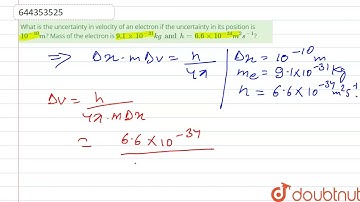 644353525
What is the uncertainty in velocity of an electron if the uncertainty in its position is
10⁻¹⁰m? Mass of the electron is 9.1 × 10⁻³¹kg and h = 6.6 × 10⁻³⁴m²s⁻¹?
⇒ Δx · mΔv = h/4π
Δx = 10⁻¹⁰ m
mₑ = 9.1×10⁻³¹ kg
h = 6.6×10⁻³⁴ m²s⁻¹
Δv = h/4π · mΔx
= 6.6 × 10⁻³⁴
doubtnut